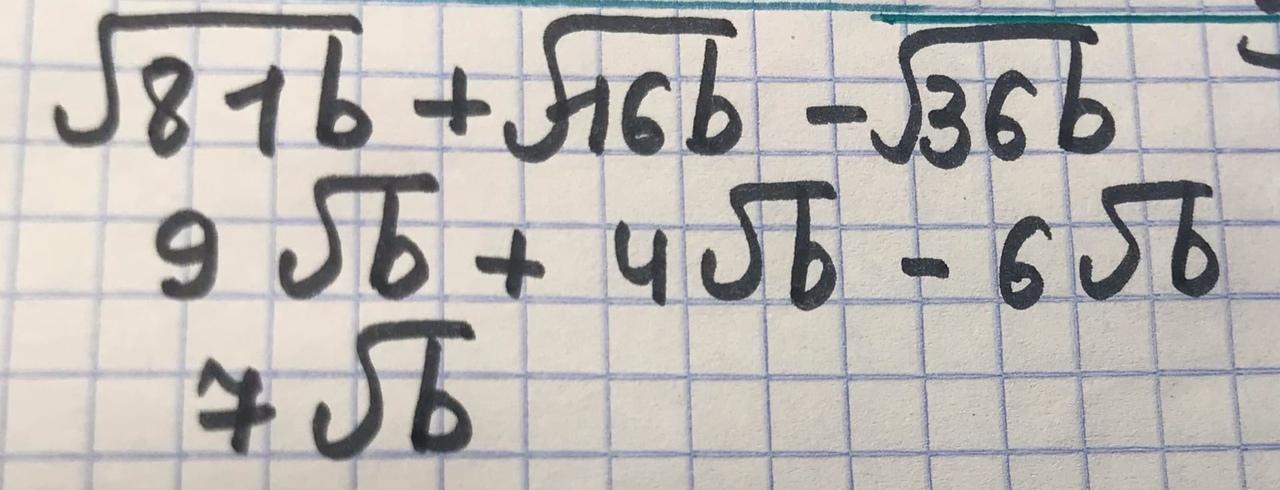 √81b + √16b - √36b
9 √b + 4 √b - 6 √b
7 √b